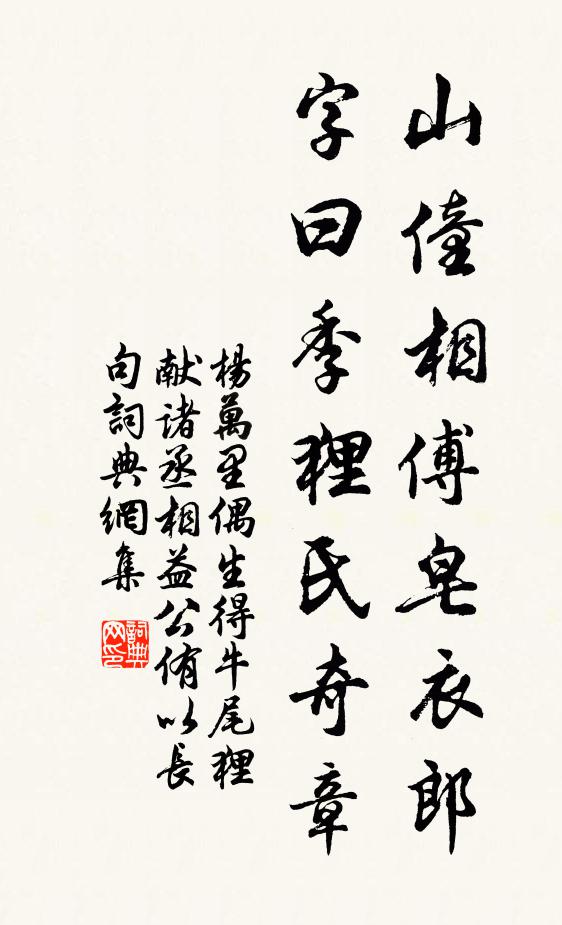 山僮相傅皂衣郎
字曰季狸氏奇章
楊萬里偶生得牛尾狸
献諸丞相益公侑以長
句詞典網集
詞典网印